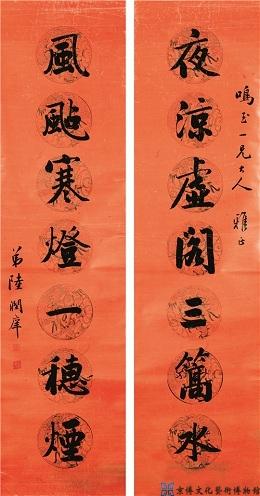 鳴玉一兄大人 雅正
夜涼虛閣三篙水
風颭寒燈一穗煙
弟陸潤庠
京傳文化藝術博物館